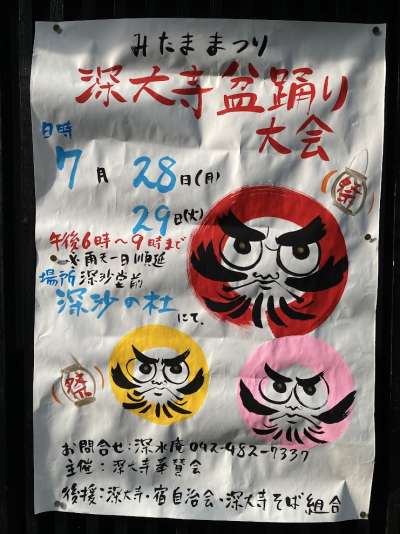 みたままつり
深大寺盆踊り
大会
日時
7月 28日(月)
29日(火)
午後6時〜9時まで
※雨天一日順延
場所 深沙堂前
深沙の杜
にて、
祭
祭
お問合せ:深水庵 042-482-7337
主催:深大寺華賛会
後援:深大寺・宿自治会・深大寺そば組合